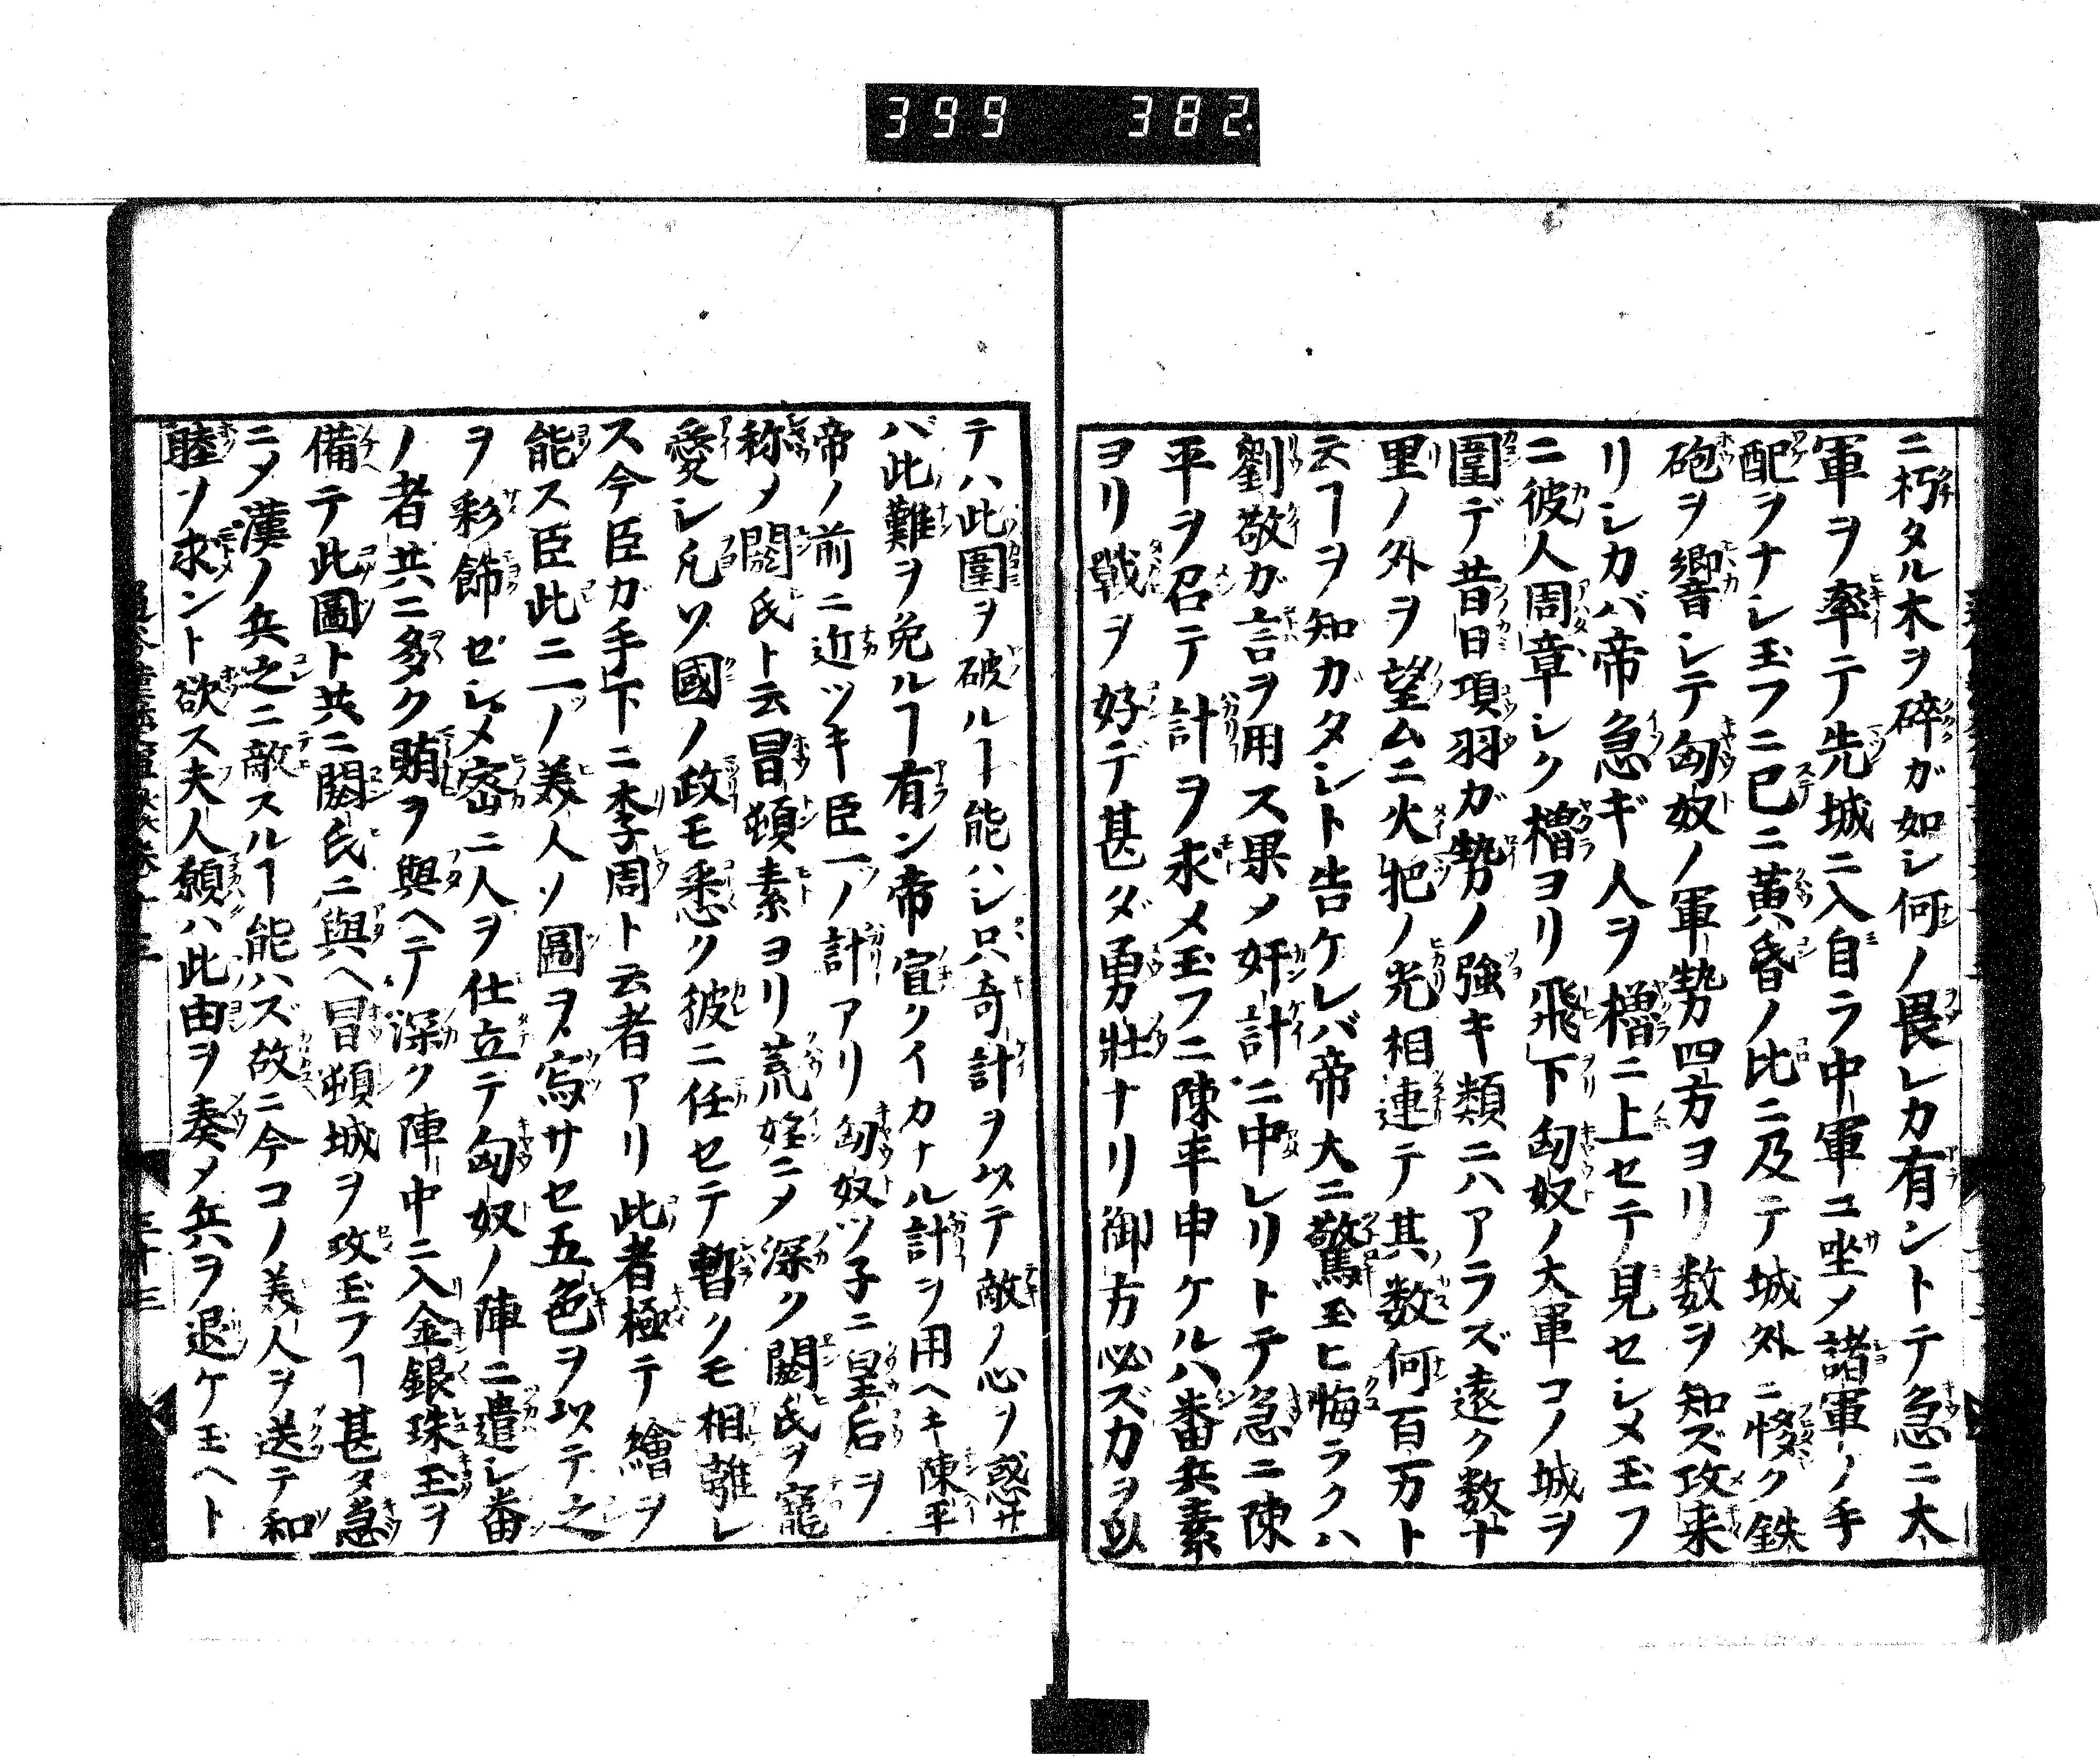 399 382.
ニ朽タル木ヲ碎ガ如シ何ノ畏レカ有ントテ急ニ大
軍ヲ率テ先城ニ入自ラ中軍ニ坐〆諸軍ノ手
配ヲナシ玉フニ已ニ黄昏ノ比ニ及テ城外ニ夥ク鉄
砲ヲ響シテ匈奴ノ軍勢四方ヨリ数ヲ知ズ攻来
リシカバ帝急ギ人ヲ櫓ニ上セテ見セシメ玉フ
ニ彼人周章シク櫓ヨリ飛下匈奴ノ大軍コノ城ヲ
圍デ昔日項羽ガ勢ノ強キ類ニハアラズ遠ク数十
里ノ外ヲ望ムニ火炮ノ光相連テ其数何百万ト
云ヿヲ知ガタシト告ケレバ帝大ニ驚玉ヒ悔ラクハ
劉敬ガ言ヲ用ス果〆奸計ニ中レリトテ急ニ陳
平ヲ召テ計ヲ求メ玉フニ陳平申ケルハ番兵素
ヨリ戦ヲ好デ甚ダ勇壮ナリ御方必ズ力ヲ以
テハ此圍ヲ破ルヿ能ハシ只奇計ヲ以テ敵ノ心ヲ惑サ
バ此難ヲ免ルヿ有ン帝宣クイカナル計ヲ用ヘキ陳平
帝ノ前ニ近ツキ臣一ノ計アリ匈奴ツ子ニ皇后ヲ
称〆閼氏ト云冒頓素ヨリ荒婬ニ〆深ク閼氏ヲ寵
愛シ凡ソ國ノ政モ悉ク彼ニ任セテ暫クモ相離レ
ス今臣ガ手下ニ李周ト云者アリ此者極テ繪ヲ
能ス臣此ニ一ノ美人ノ圖ヲ寫サセ五色ヲ以テ之
ヲ彩飾ゼシメ密ニ人ヲ仕立テ匈奴ノ陣ニ遣シ番
ノ者共ニ多ク賄ヲ與ヘテ深ク陣中ニ入金銀珠玉ヲ
備テ此圖ト共ニ閼氏ニ與ヘ冒頓城ヲ攻玉フヿ甚タ急
ニ〆漢ノ兵之ニ敵スルヿ能ハズ故ニ今コノ美人ヲ送テ和
睦ヲ求ント欲ス夫人願ハ此由ヲ奏〆兵ヲ退ケ玉ヘト